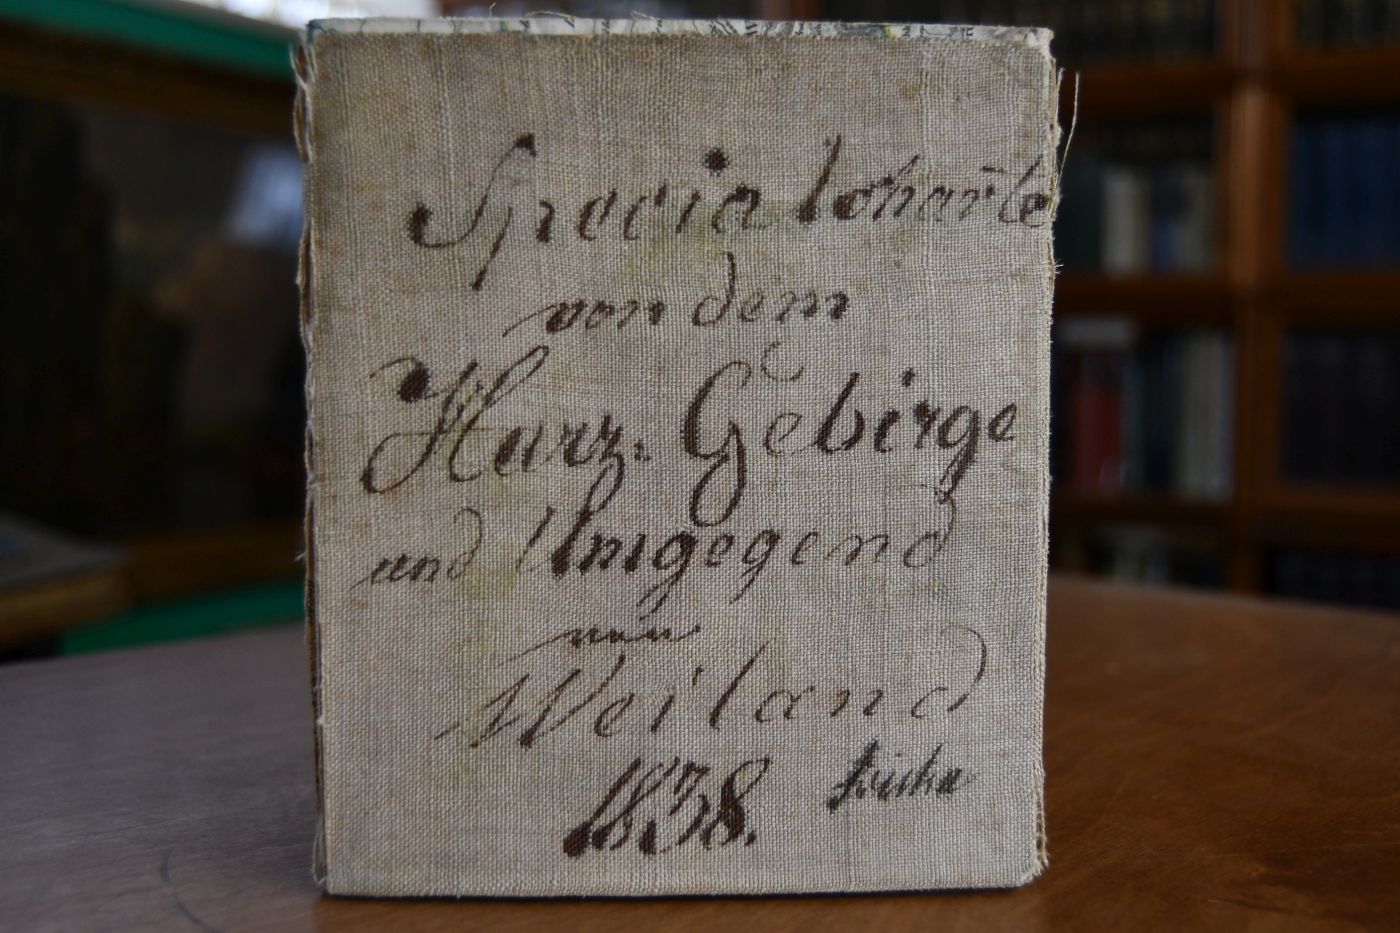 Specialcharte
von dem
Harz. Gebirge
und Umgegend
von
Weiland
1838.